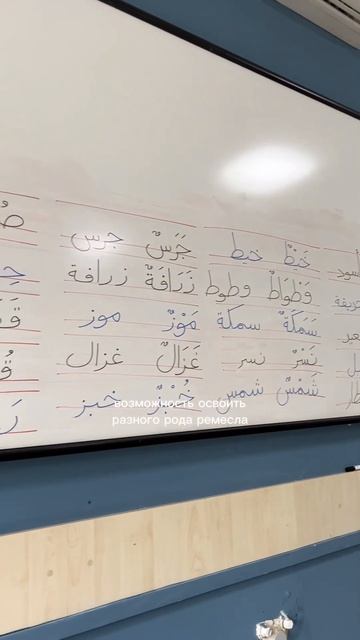 خَيْطٌ خيط
وَطْوَاطٌ وطوط
سَمَكَةٌ سمكة
نَسْرٌ نسر
شَمْسٌ شمس
جَرَسٌ جرس
زَرَافَةٌ زرافة
مَوْزٌ موز
غَزَالٌ غزال
خُبْزٌ خبز
возможность освоить
разного рода ремесла